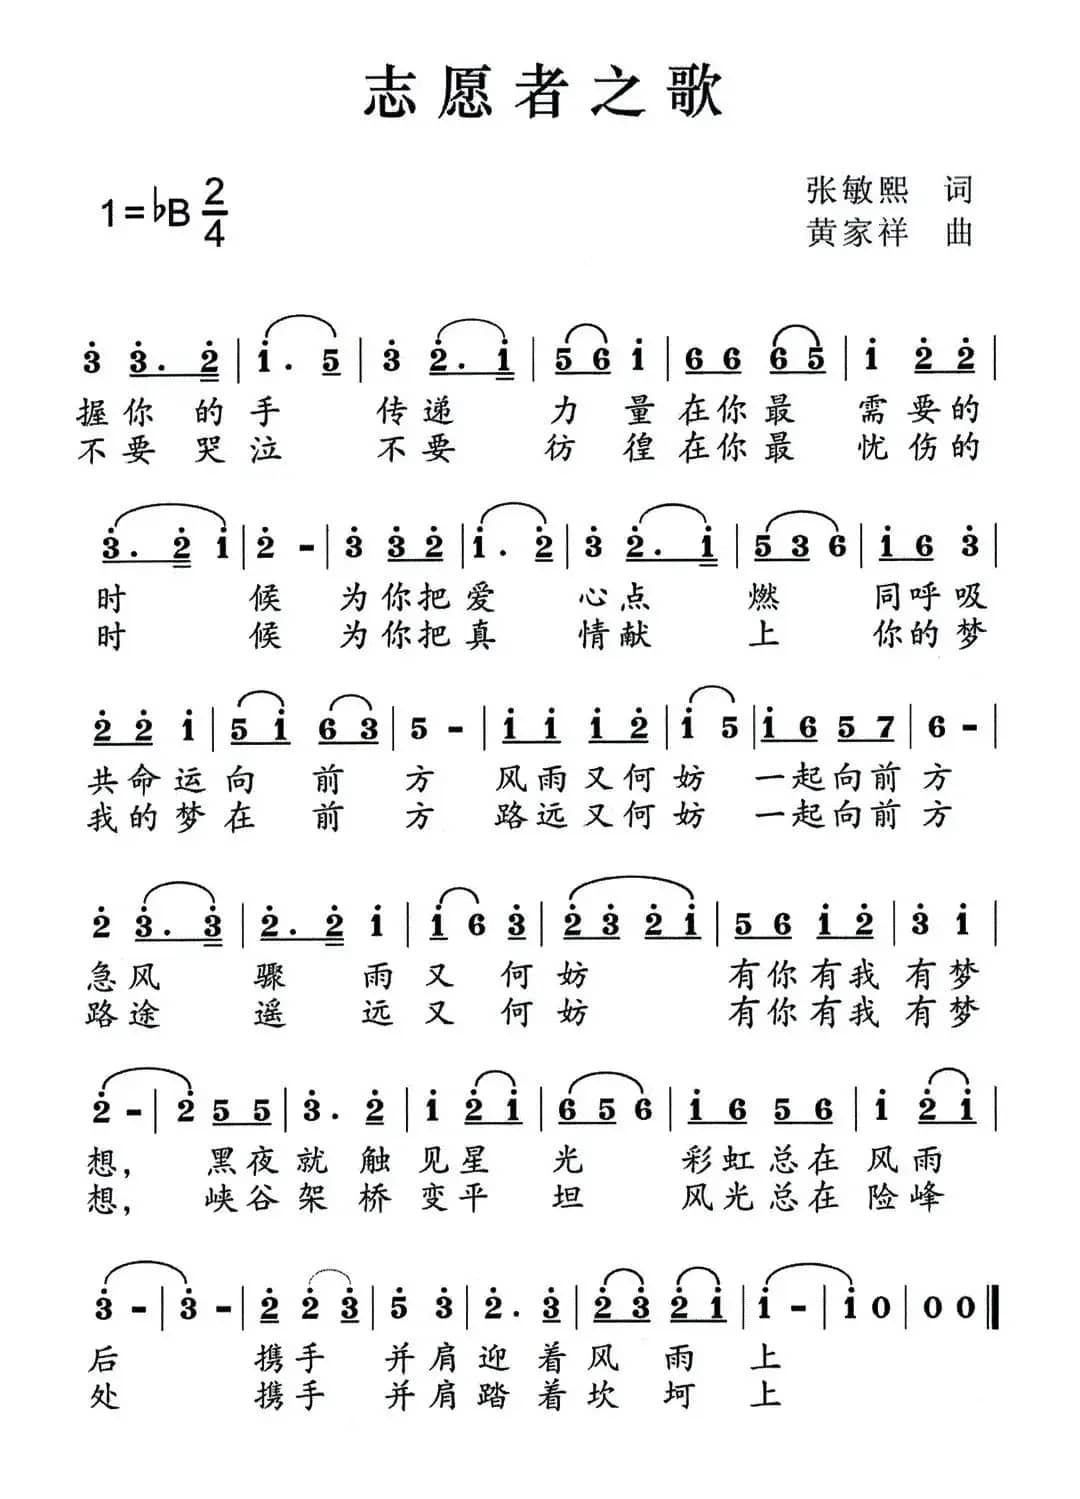 志愿者之歌
1=♭B 2/4
张敏熙 词
黄家祥 曲
3̇ 3̇. 2̇ | 1̇. 5 | 3̇ 2̇. 1̇ | 5 6 1̇ | 6 6 6 5 | 1̇ 2̇ 2̇ |
握你的手 传递力量在你最需要的
不要哭泣 不要彷徨在你最忧伤的
3̇. 2̇ 1̇ | 2̇ - | 3̇ 3̇ 2̇ | 1̇. 2̇ | 3̇ 2̇. 1̇ | 5 3 6 | 1̇ 6 3̇ |
时候为你把爱心点燃 同呼吸
时候为你把真情献上 你的梦
2̇ 2̇ 1̇ | 5 1̇ 6 3 | 5 - | 1̇ 1̇ 1̇ 2̇ | 1̇ 5 | 1̇ 6 5 7 | 6 - |
共命运向前方 风雨又何妨 一起向前方
我的梦在前方 路远又何妨 一起向前方
2̇ 3̇. 3̇ | 2̇. 2̇ 1̇ | 1̇ 6 3̇ | 2̇ 3̇ 2̇ 1̇ | 5 6 1̇ 2̇ | 3̇ 1̇ |
急风骤雨又何妨 有你有我有梦
路途遥远又何妨 有你有我有梦
2̇ - | 2̇ 5 5 | 3̇. 2̇ | 1̇ 2̇ 1̇ | 6 5 6 | 1̇ 6 5 6 | 1̇ 2̇ 1̇ |
想，黑夜就触见星光 彩虹总在风雨
想，峡谷架桥变平坦 风光总在险峰
3̇ - | 3̇ - | 2̇ 2̇ 3̇ | 5 3̇ | 2̇. 3̇ | 2̇ 3̇ 2̇ 1̇ | 1̇ - | 1̇ 0 | 0 0 ‖
后 携手并肩迎着风雨上
处 携手并肩踏着坎坷上